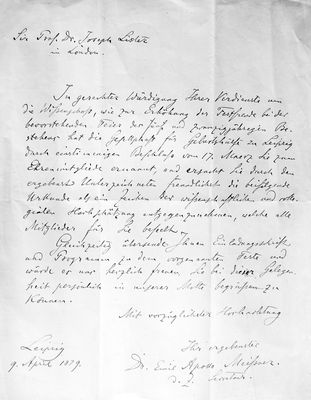 Sir Prof. Dr. Joseph Lister
in London.
In gerechter Würdigung Ihrer Verdienste um
die Wissenschaft, wie zur Erhöhung der Festfreude bei der
bevorstehenden Feier des fünf und zwanzigjährigen Be-
stehens hat die Gesellschaft für Geburtshülfe zu Leipzig
durch einstimmigen Beschluss vom 17. Maerz Sie zum
Ehrenmitgliede ernannt, und ersucht Sie durch den
ergebenst Unterzeichneten freundlichst die beifolgende
Urkunde als ein Zeichen der wissenschaftlichen und colle-
gialen Hochschätzung entgegenzunehmen, welche alle
Mitglieder für Sie beseelt.
Gleichzeitig übersende Ihnen Einladungsschrift
und Programm zu dem vorgenannten Feste und
würde es uns herzlich freuen Sie bei dieser Gelegen
heit persönlich in unserer Mitte begrüssen zu
können.
Mit vorzüglichster Hochachtung
Leipzig
9. April 1879.
Ihr ergebenster
Dr. Emil Apollo Meissner.
d. Z. Secretair.